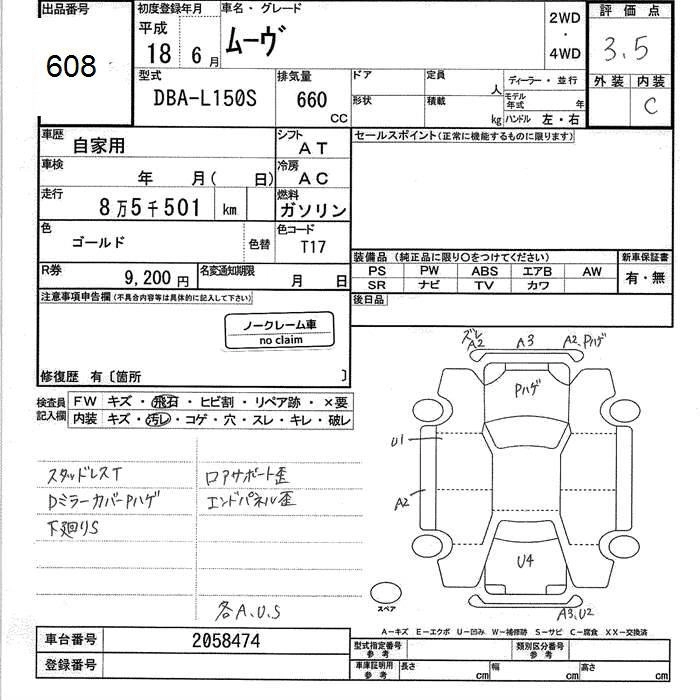 出品番号 初度登録年月 車名・グレード 2WD・4WD 評価点
608 平成 18 6月 ムーヴ 3.5
型式 排気量 ドア 定員 人 ディーラー・並行 外装 内装
DBA-L150S 660 CC 形状 積載 kg モデル年式 年 ハンドル 左・右 C
車歴 自家用 シフト AT セールスポイント(正常に機能するものに限ります)
車検 年 月( 日) 冷房 AC
走行 8万5千501 km 燃料 ガソリン
色 ゴールド 色替 色コード T17
装備品(純正品に限り○をつけてください) 新車保証書
PS PW ABS エアB AW 有・無
SR ナビ TV カワ
R券 9,200円 名変通知期限 月 日
後日品
注意事項申告欄(不具合内容等は具体的に記入して下さい)
ノークレーム車
no claim
修復歴 有〔箇所 〕
検査員記入欄 FW キズ・飛石・ヒビ割・リペア跡・×要
内装 キズ・汚レ・コゲ・穴・スレ・キレ・破レ
スタッドレスT ロアサポート歪
Dミラーカバーpハゲ エンドパネル歪
下廻りS
各A.U.S
ズレ
A2 A3 A2.Pハゲ
Pハゲ
U1
A2
U4
スペア
A3.U2
A-キズ E-エクボ U-凹み W-補修跡 S-サビ C-腐食 XX-交換済
車台番号 2058474 型式指定番号 参考 類別区分番号 参考
登録番号 車庫証明用 参考 長さ cm 幅 cm 高さ cm